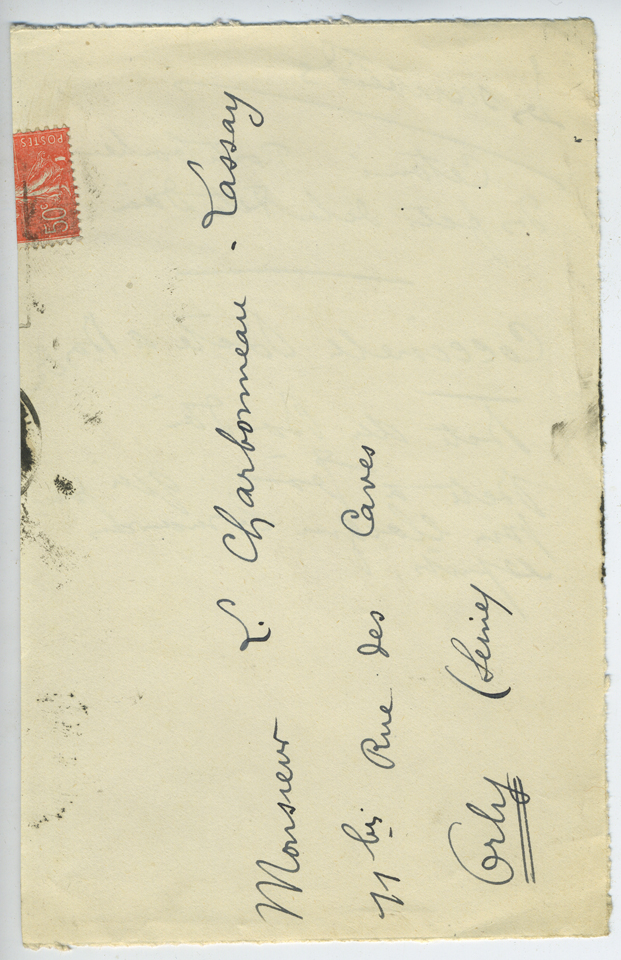 Monsieur L. Charbonneau - Lassay
11 bis Rue des Caves
Orly (Seine)
POSTES
50c